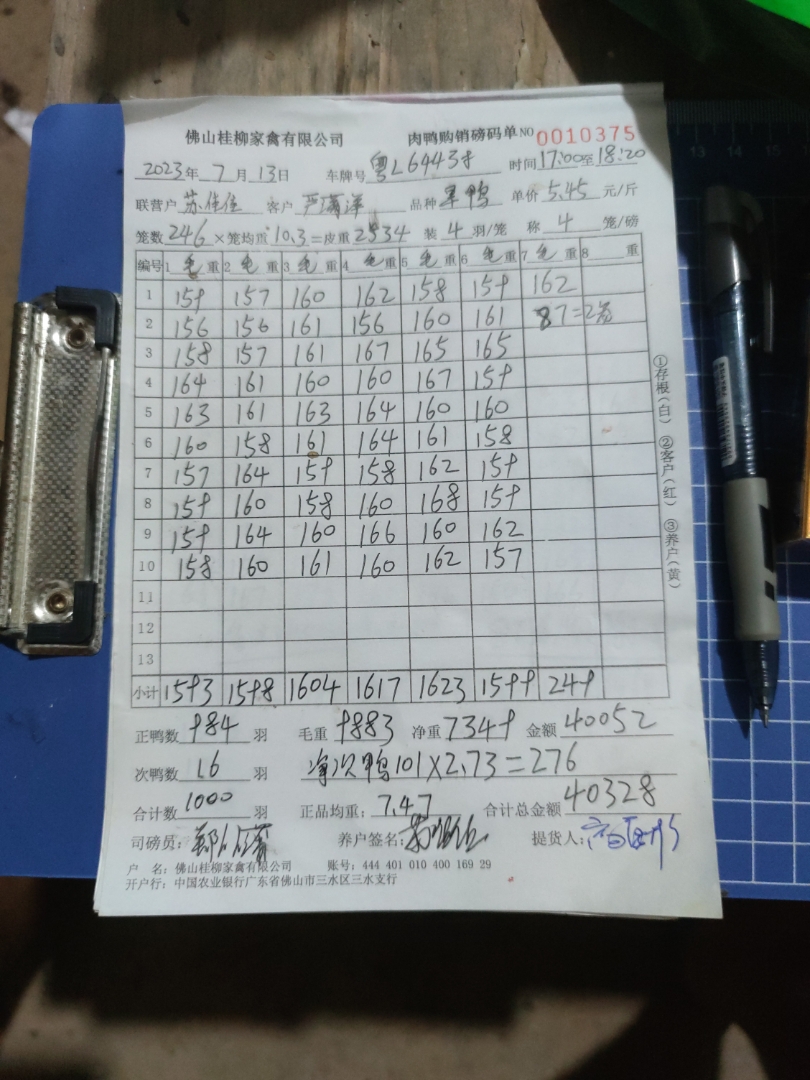 佛山桂柳家禽有限公司 肉鸭购销磅码单 NO 0010375
2023年 7 月 13日 车牌号 粤L64439 时间 17:00至18:20
联营户 苏佳佳 客户 严潇洋 品种 果鸭 单价 5.45 元/斤
笼数 246 ×笼均重 10.3 =皮重 2534 装 4 羽/笼 称 4 笼/磅
编号 1 毛 重 2 毛 重 3 毛 重 4 毛 重 5 毛 重 6 毛 重 7 毛 重 8 重
1 159 157 160 162 158 159 162
2 156 156 161 156 160 161 87=2笼
3 158 157 161 167 165 165
4 164 161 160 160 167 159
5 163 161 163 164 160 160
6 160 158 161 164 161 158
7 157 164 159 158 162 159
8 159 160 158 160 168 159
9 159 164 160 166 160 162
10 158 160 161 160 162 157
11
12
13
小计 1593 1598 1604 1617 1623 1599 249
正鸭数 984 羽 毛重 9883 净重 7349 金额 40052
次鸭数 16 羽 净次鸭101×2.73=276
合计数 1000 羽 正品均重: 7.47 合计总金额 40328
司磅员: 养户签名: 提货人:
户 名: 佛山桂柳家禽有限公司 账号: 444 401 010 400 169 29
开户行: 中国农业银行广东省佛山市三水区三水支行
①存根(白) ②客户(红) ③养户(黄)
13 14 15